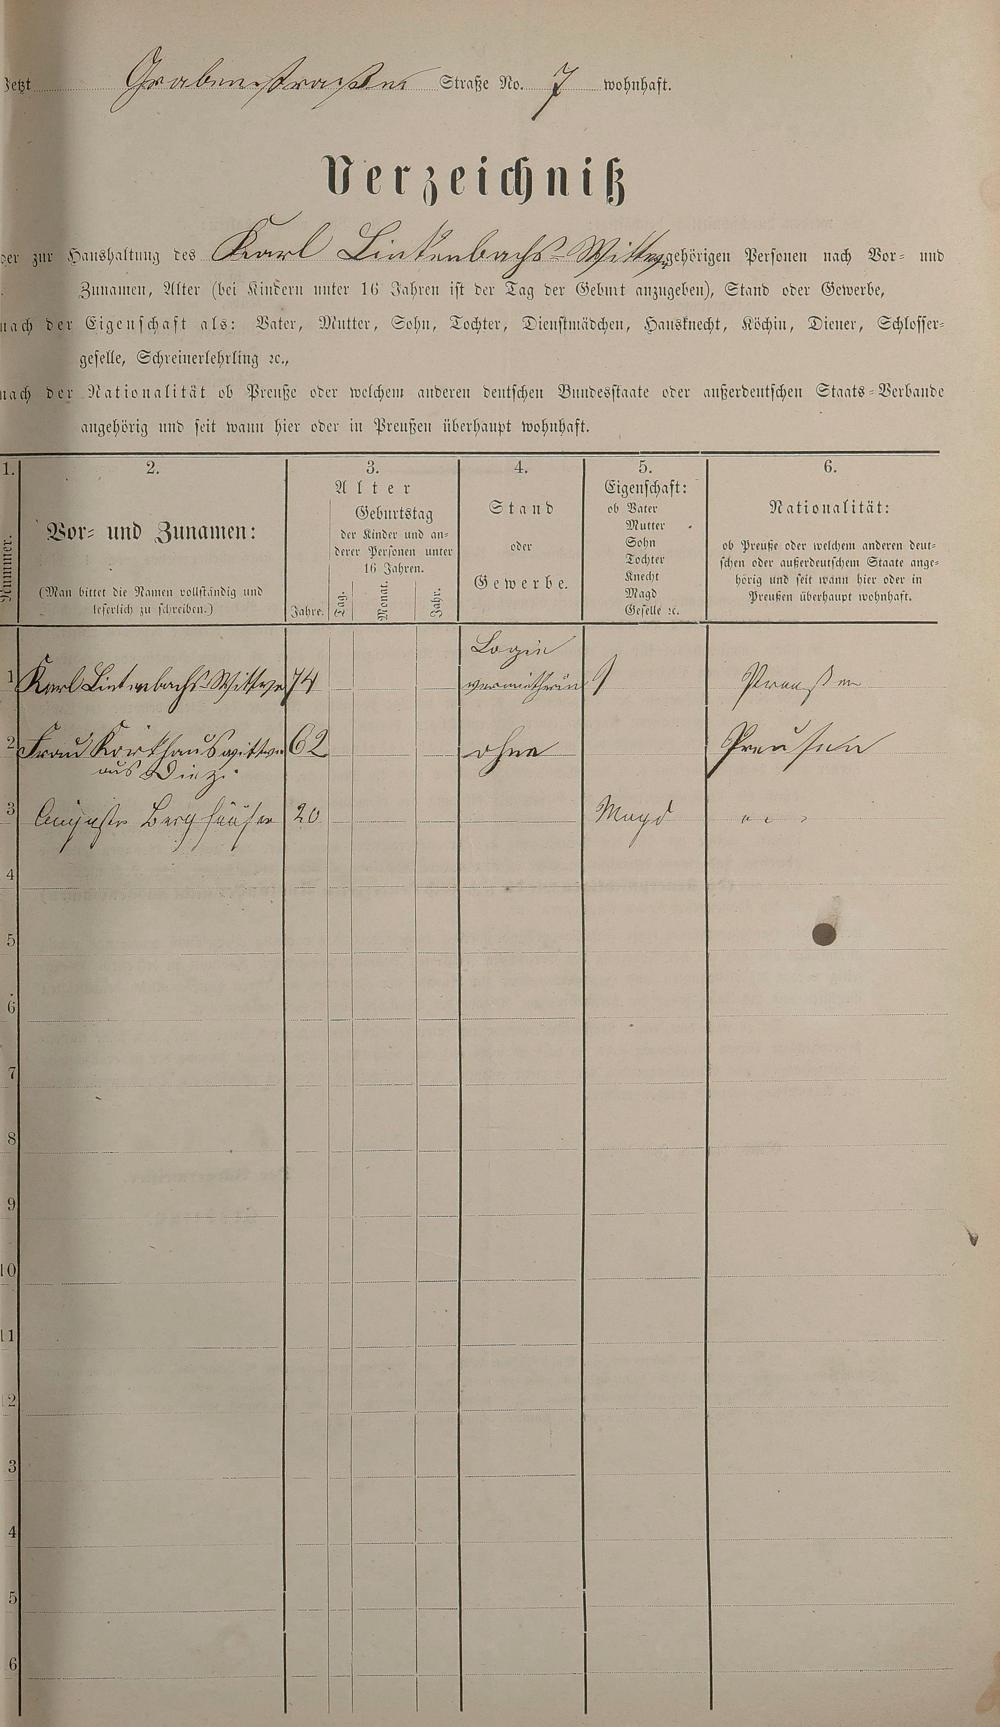 Jetzt Grabenstraßen Straße No. 7 wohnhaft.
Verzeichniß
der zur Haushaltung des Karl Lintenbachs-Wittwe gehörigen Personen nach Vor- und
Zunamen, Alter (bei Kindern unter 16 Jahren ist der Tag der Geburt anzugeben), Stand oder Gewerbe,
nach der Eigenschaft als: Vater, Mutter, Sohn, Tochter, Dienstmädchen, Hausknecht, Köchin, Diener, Schlosser-
geselle, Schreinerlehrling ꝛc.,
nach der Nationalität ob Preuße oder welchem anderen deutschen Bundesstaate oder außerdeutschen Staats-Verbande
angehörig und seit wann hier oder in Preußen überhaupt wohnhaft.
1. 2. 3. 4. 5. 6.
Nummer.
Vor- und Zunamen:
(Man bittet die Namen vollständig und
leserlich zu schreiben.)
Alter
Jahre.
Geburtstag
der Kinder und an-
derer Personen unter
16 Jahren.
Tag. Monat. Jahr.
Stand
oder
Gewerbe.
Eigenschaft:
ob Vater
Mutter
Sohn
Tochter
Knecht
Magd
Geselle ꝛc.
Nationalität:
ob Preuße oder welchem anderen deut-
schen oder außerdeutschem Staate ange-
hörig und seit wann hier oder in
Preußen überhaupt wohnhaft.
Logie
1 Karl Lintenbachs-Wittwe 74 vermietherin Preußen
2 Frau Korkhaus wittwe 62 ohne Preusen
aus Diez.
3 Auguste Berghäuser 20 Magd " " "
4
5
6
7
8
9
10
11
12
3
4
5
6